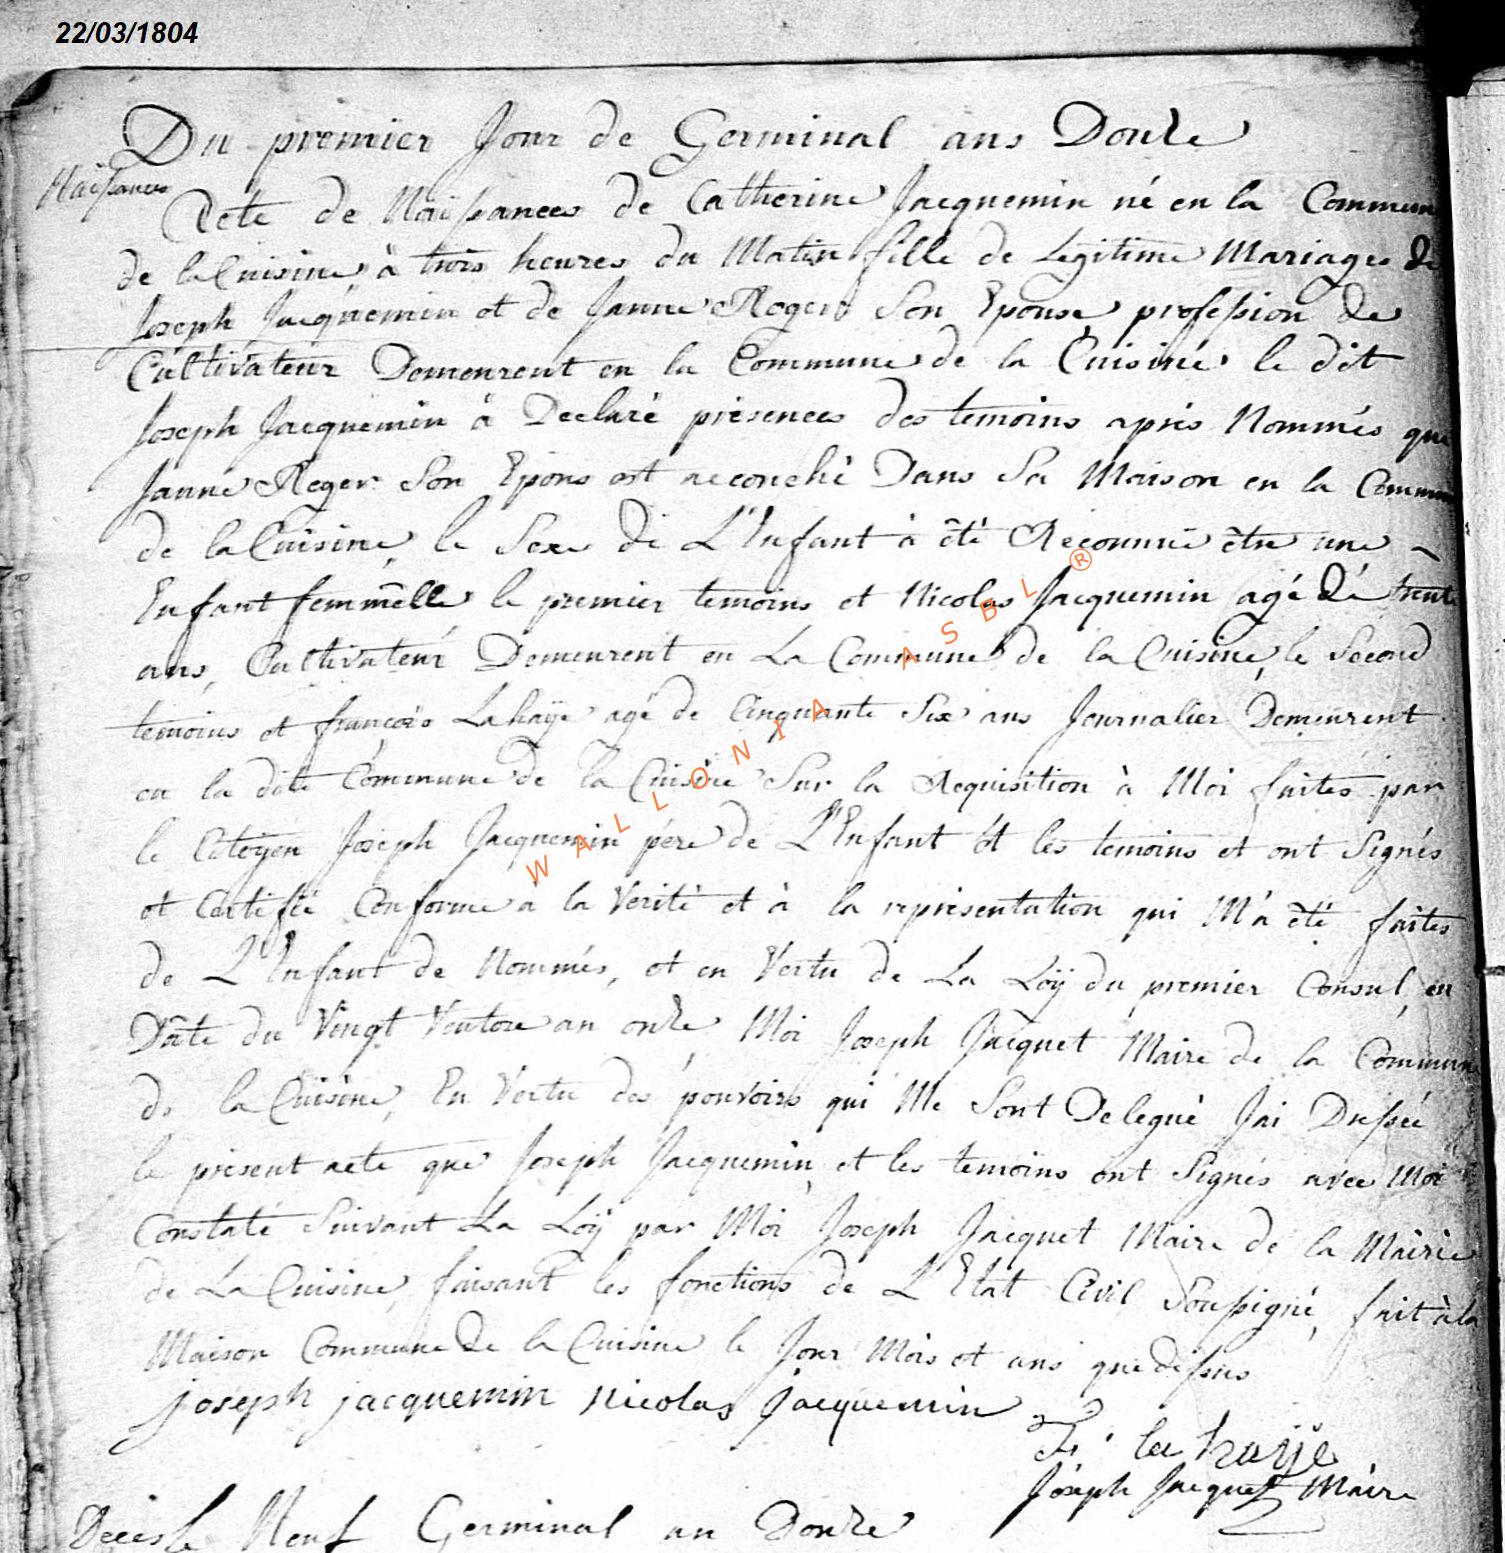 22/03/1804
Du premier Jour de Germinal ans Douze
Naissances
Acte de Naissances de Catherine Jacquemin né en la Commun
de la Cuisine, à trois heures du Matin fille de Legitime Mariages de
Joseph Jacquemin et de Janne Roger Son Epouse profession de
Cultivateur Demeurent en la Commune de la Cuisine le dit
Joseph Jacquemin à Declaré présences des temoins après Nommés que
Janne Roger Son Epous est accouché Dans Sa Maison en la Commun
de la Cuisine, le Sexe de L'Enfant à été Reconnue être une
Enfant femmelle, le premier temoins et Nicolas Jacquemin agé dé trente
ans, Cultivateur Demeurent en La Commune de la Cuisine, le Second
temoins et françois Lahaÿe agé de Cinquante Six ans Journalier Demeurent
en la dite Commune de la Cuisine Sur la Requisition à Moi faites par
le Citoyen Joseph Jacquemin père de L'Enfant et les temoins et ont Signés
et Certifié Conforme à la Verité et à la représentation qui M'a été faites
de L'Enfant de Nommés, et en Vertu de La Loÿ du premier Consul, en
Dâte du Vingt Ventose an onze Moi Joseph Jacquet Maire de la Commune
de la Cuisine, En Vertu des pouvoirs qui Me Sont Delegué Jai Dressée
le présent acte que Joseph Jacquemin, et les temoins ont Signés avec Moi
Constaté Suivant La Loÿ par Moi Joseph Jacquet Maire de la Mairie
de La Cuisine, faisant les fonctions de L'Etat Civil Soussigné, fait à la
Maison Commune de la Cuisine le Jour Mois et ans que dessus
joseph jacquemin Nicolas Jacquemin
Fr. la haÿe
Joseph Jacquet Maire
Décès le Neuf Germinal an Douze
WALLONIA ASBL ®